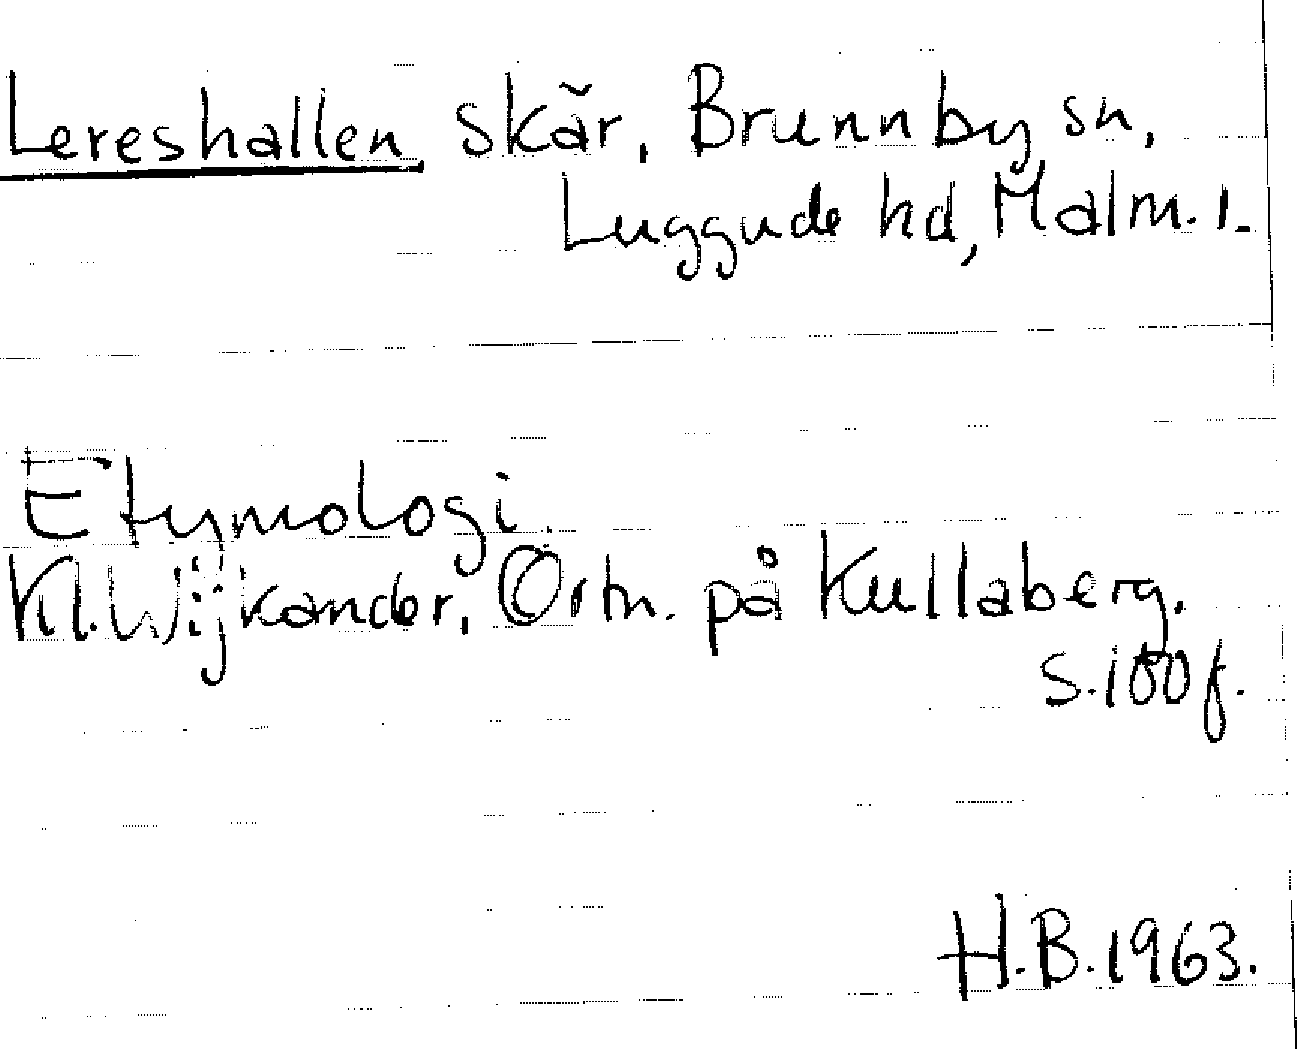 Lereshallen, skär, Brunnby sn,
Luggude hd, Malm. l.
Etymologi
Kl. Wijkander, Ortn. på Kullaberg.
s. 100 f.
H.B. 1963.